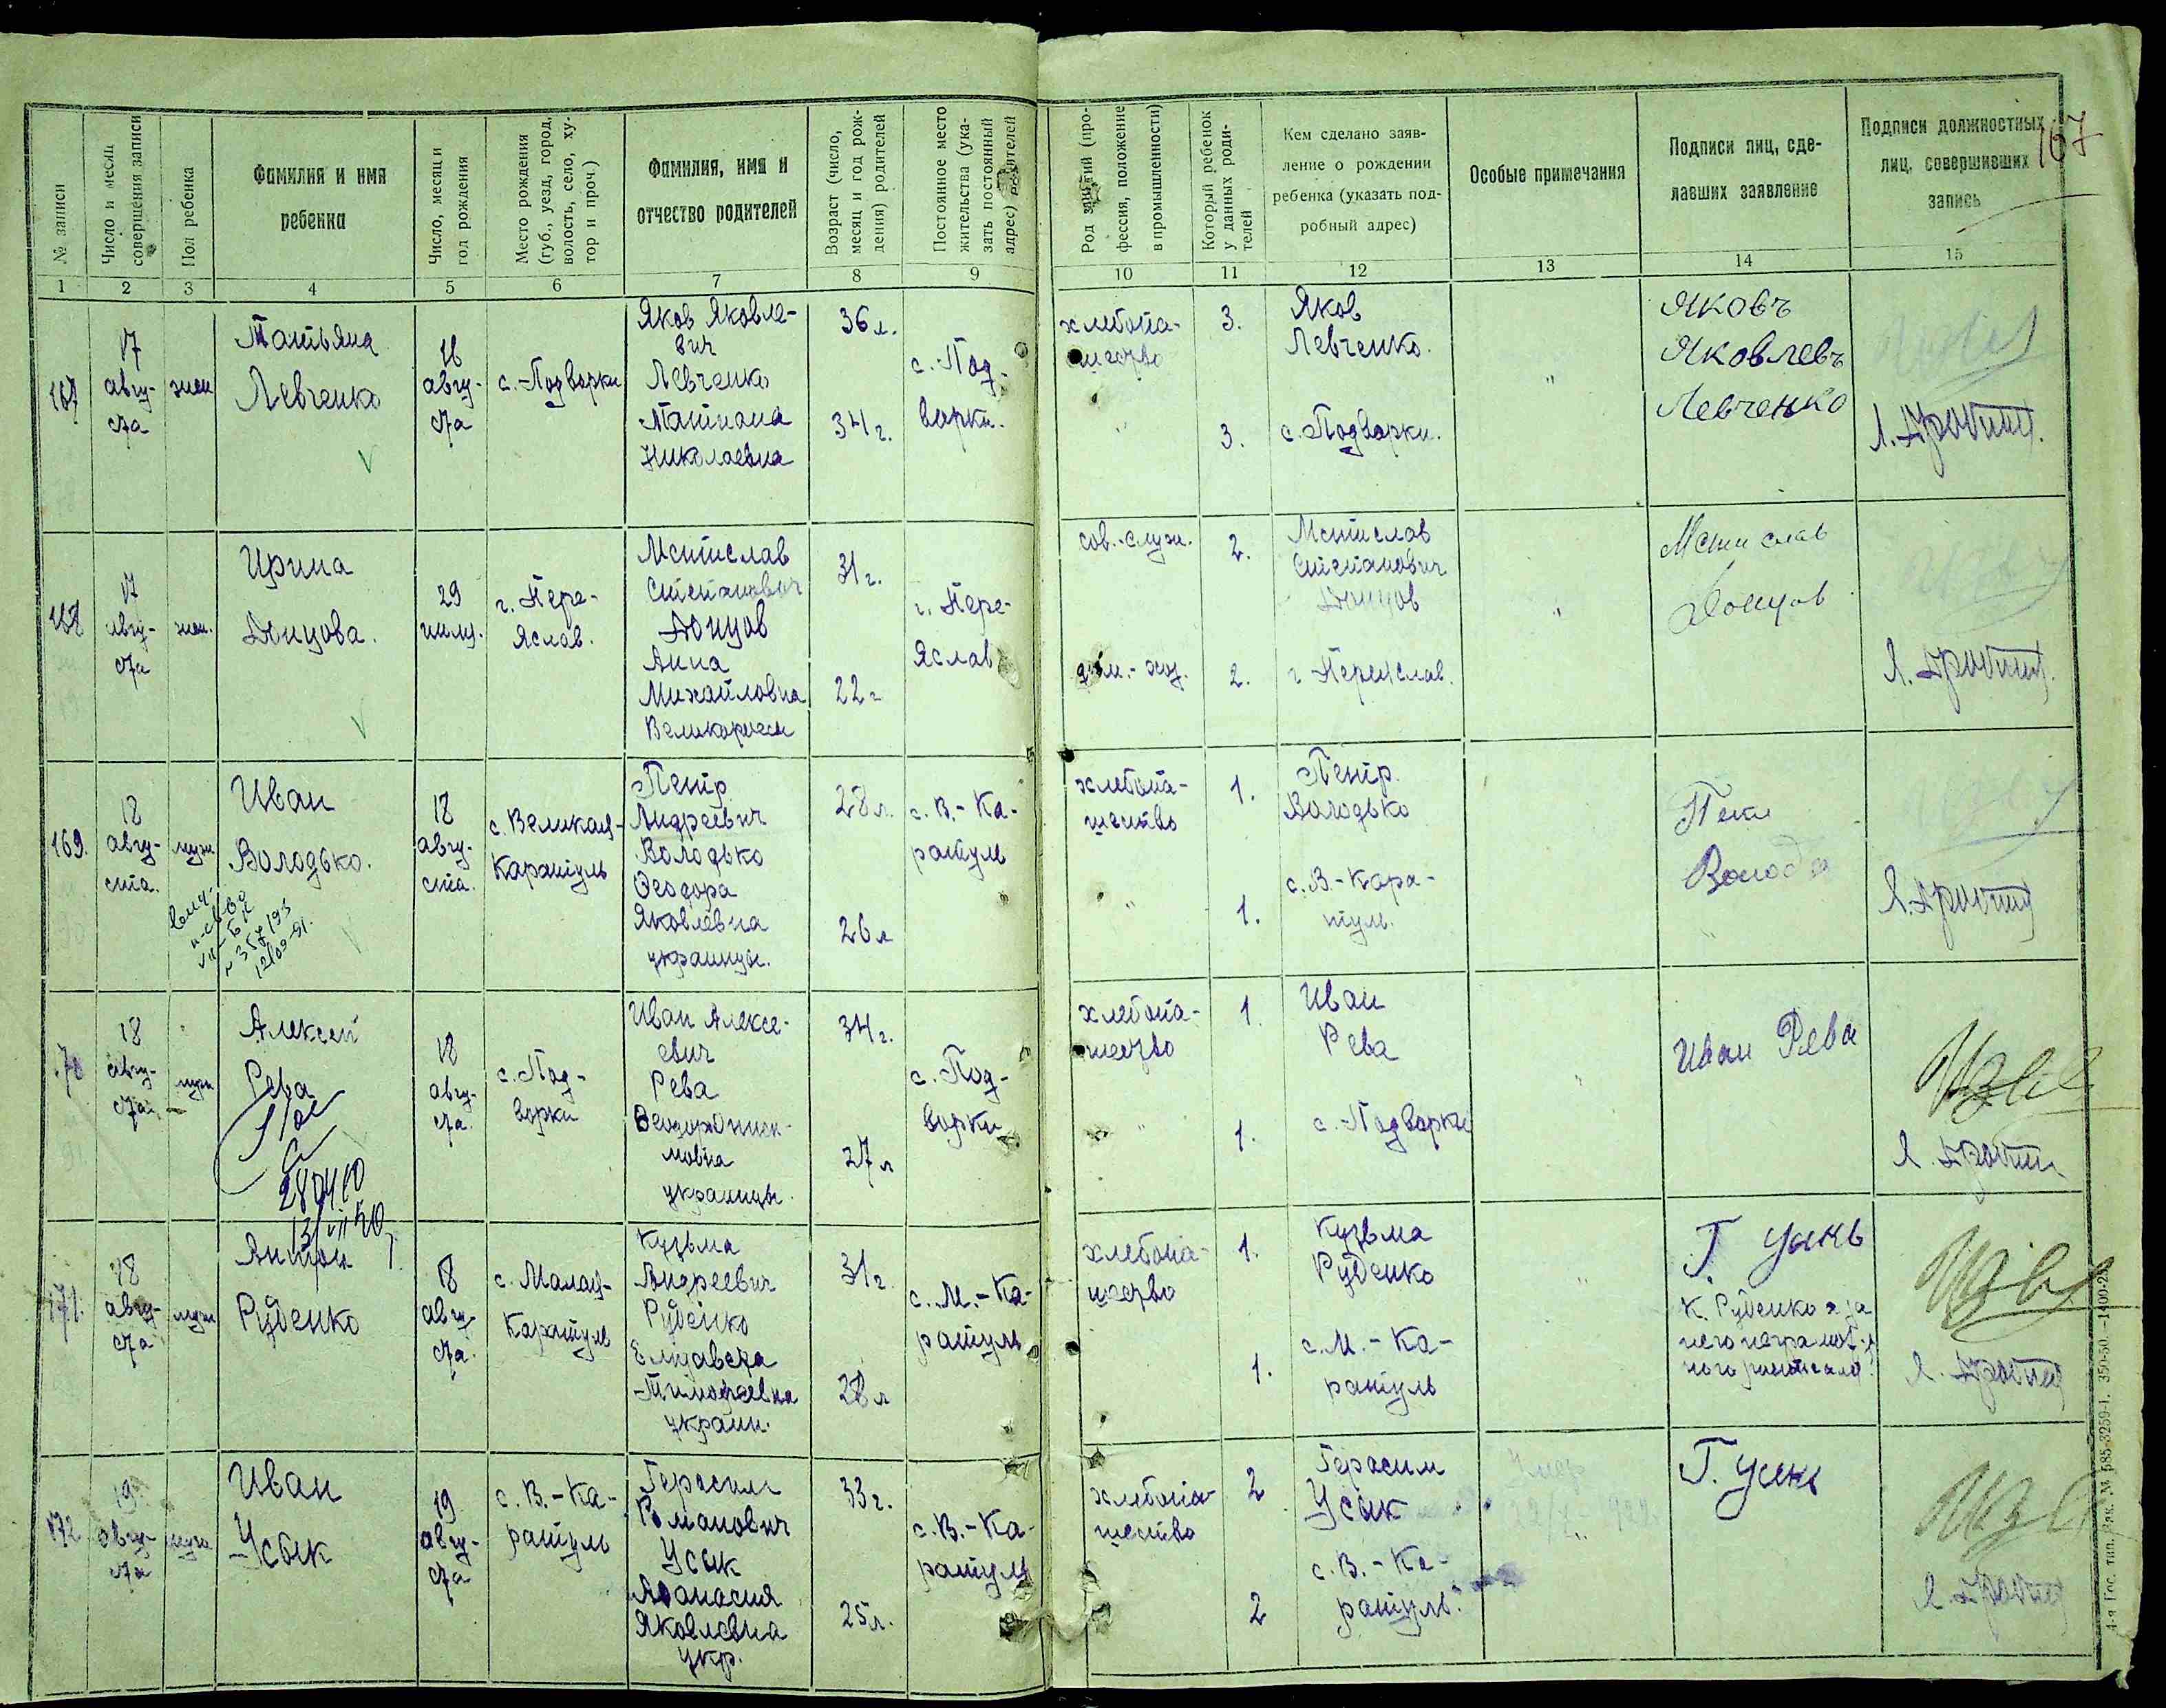 167
№ записи
Число и месяц
совершения записи
Пол ребенка
Фамилия и имя
ребенка
Число, месяц и
год рождения
Место рождения
(губ., уезд, город,
волость, село, ху-
тор и проч.)
Фамилия, имя и
отчество родителей
Возраст (число,
месяц и год рож-
дения) родителей
Постоянное место
жительства (ука-
зать постоянный
адрес) родителей
Род занятий (про-
фессия, положение
в промышленности)
Который ребенок
у данных роди-
телей
Кем сделано заяв-
ление о рождении
ребенка (указать под-
робный адрес)
Особые примечания
Подписи лиц, сде-
лавших заявление
Подписи должностных
лиц, совершивших
запись
1
2
3
4
5
6
7
8
9
10
11
12
13
14
15
167
17
авгу-
ста
жен
Татьяна
Левченко
16
авгу-
ста
с. Подворки
Яков Яковле-
вич
Левченко
Татиана
Николаевна
36 л.
34 г.
с. Под-
ворки.
хлебопа-
шество
"
3.
3.
Яков
Левченко.
с. Подворки.
"
Яковъ
Яковлевъ
Левченко
168
17
авгу-
ста
жен.
Ирина
Донцова.
29
г. Пере-
яслав.
Мстислав
Степанович
Донцов
Анна
Михайловна
31 г.
22 г
г. Пере-
яслав
сов.-служ.
дом.-хоз.
2.
2.
Мстислав
Степанович
Донцов
г. Переяслав.
"
Мстислав
Донцов
169.
18
авгу-
ста.
муж
Иван
Володько.
18
авгу-
ста.
с. Великая-
Каратуль
Петр
Андреевич
Володько
Феодора
Яковлевна
украинцы.
28 л.
26 л
с. В.-Ка-
ратуль
хлебопа-
шество
"
1.
1.
Петр.
Володько
с. В.-Кара-
туль.
170
18
авгу-
ста
муж
Алексей
Рева
18
авгу-
ста.
с. Под-
ворки
Иван Алексе-
евич
Рева
украинцы.
34 г.
27 л
с. Под-
ворки
хлебопа-
шество
"
1.
1.
Иван
Рева
с. Подворки
"
Иван Рева
171.
18
авгу-
ста
муж
Антон
Руденко
18
авгу-
ста.
с. Малая-
Каратуль
Кузьма
Андреевич
Руденко
Елизавета
Тимофеевна
украин.
31 г.
28 л
с. М.-Ка-
ратуль
хлебопа-
шество
1.
1.
Кузьма
Руденко
с. М.-Ка-
ратуль
"
К. Руденко а за
него неграмот-
ного
172
19
авгу-
ста
муж
Иван
Усык
19
авгу-
ста
с. В.-Ка-
ратуль
Герасим
Романович
Усык
Афанасия
Яковлевна
укр.
33 г.
25 л.
с. В.-Ка-
ратуль
хлебопа-
шество
2
2
Герасим
Усык
с. В.-Ка-
ратуль.
Умер